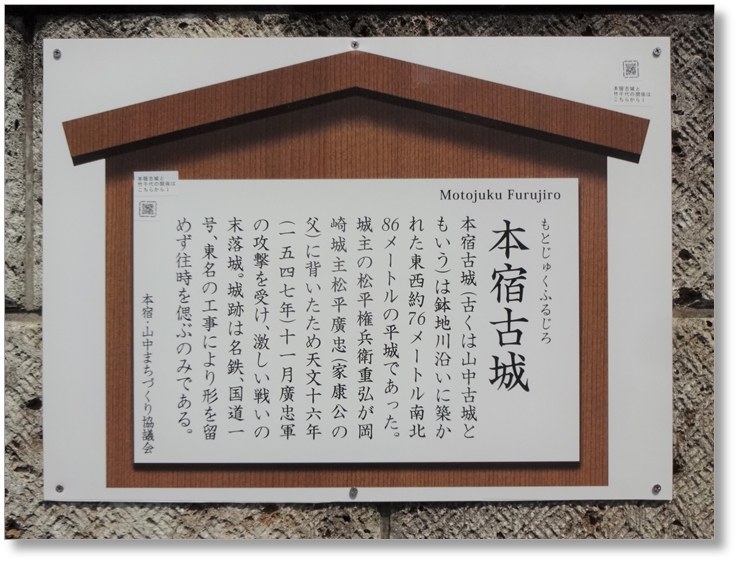 本宿古城と
竹千代の関係は
こちらから！
Motojuku Furujiro
もとじゅくふるじろ
本宿古城
本宿古城（古くは山中古城と
もいう）は鉢地川沿いに築か
れた東西約76メートル南北
86メートルの平城であった。
城主の松平権兵衛重弘が岡
崎城主松平廣忠（家康公の
父）に背いたため天文十六年
（一五四七年）十一月廣忠軍
の攻撃を受け、激しい戦いの
末落城。城跡は名鉄、国道一
号、東名の工事により形を留
めず往時を偲ぶのみである。
本宿・山中まちづくり協議会
本宿古城と
竹千代の関係は
こちらから！